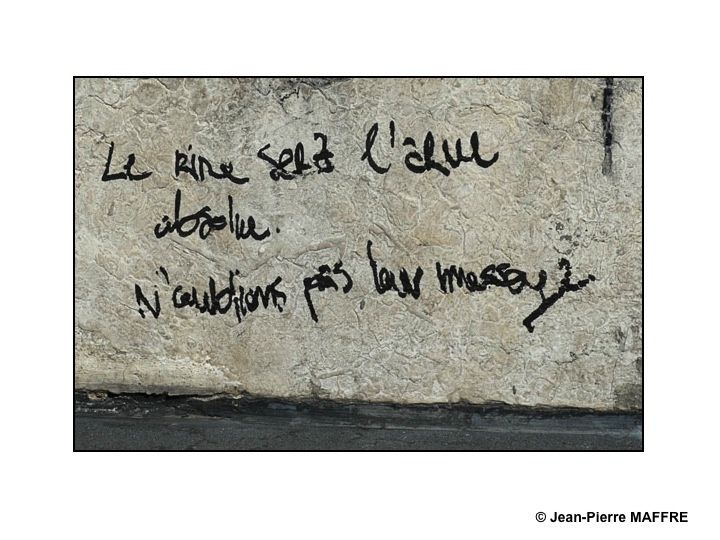 Le rire sera l'arme
absolue.
N'oublions pas leur message...
© Jean-Pierre MAFFRE